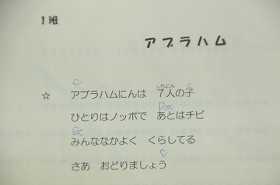 1組
アブラハム
C
しちにん
☆ アブラハムにんは 7人の子
ひとりはノッポで あとはチビ
みんななかよく くらしてる
さあ おどりましょう